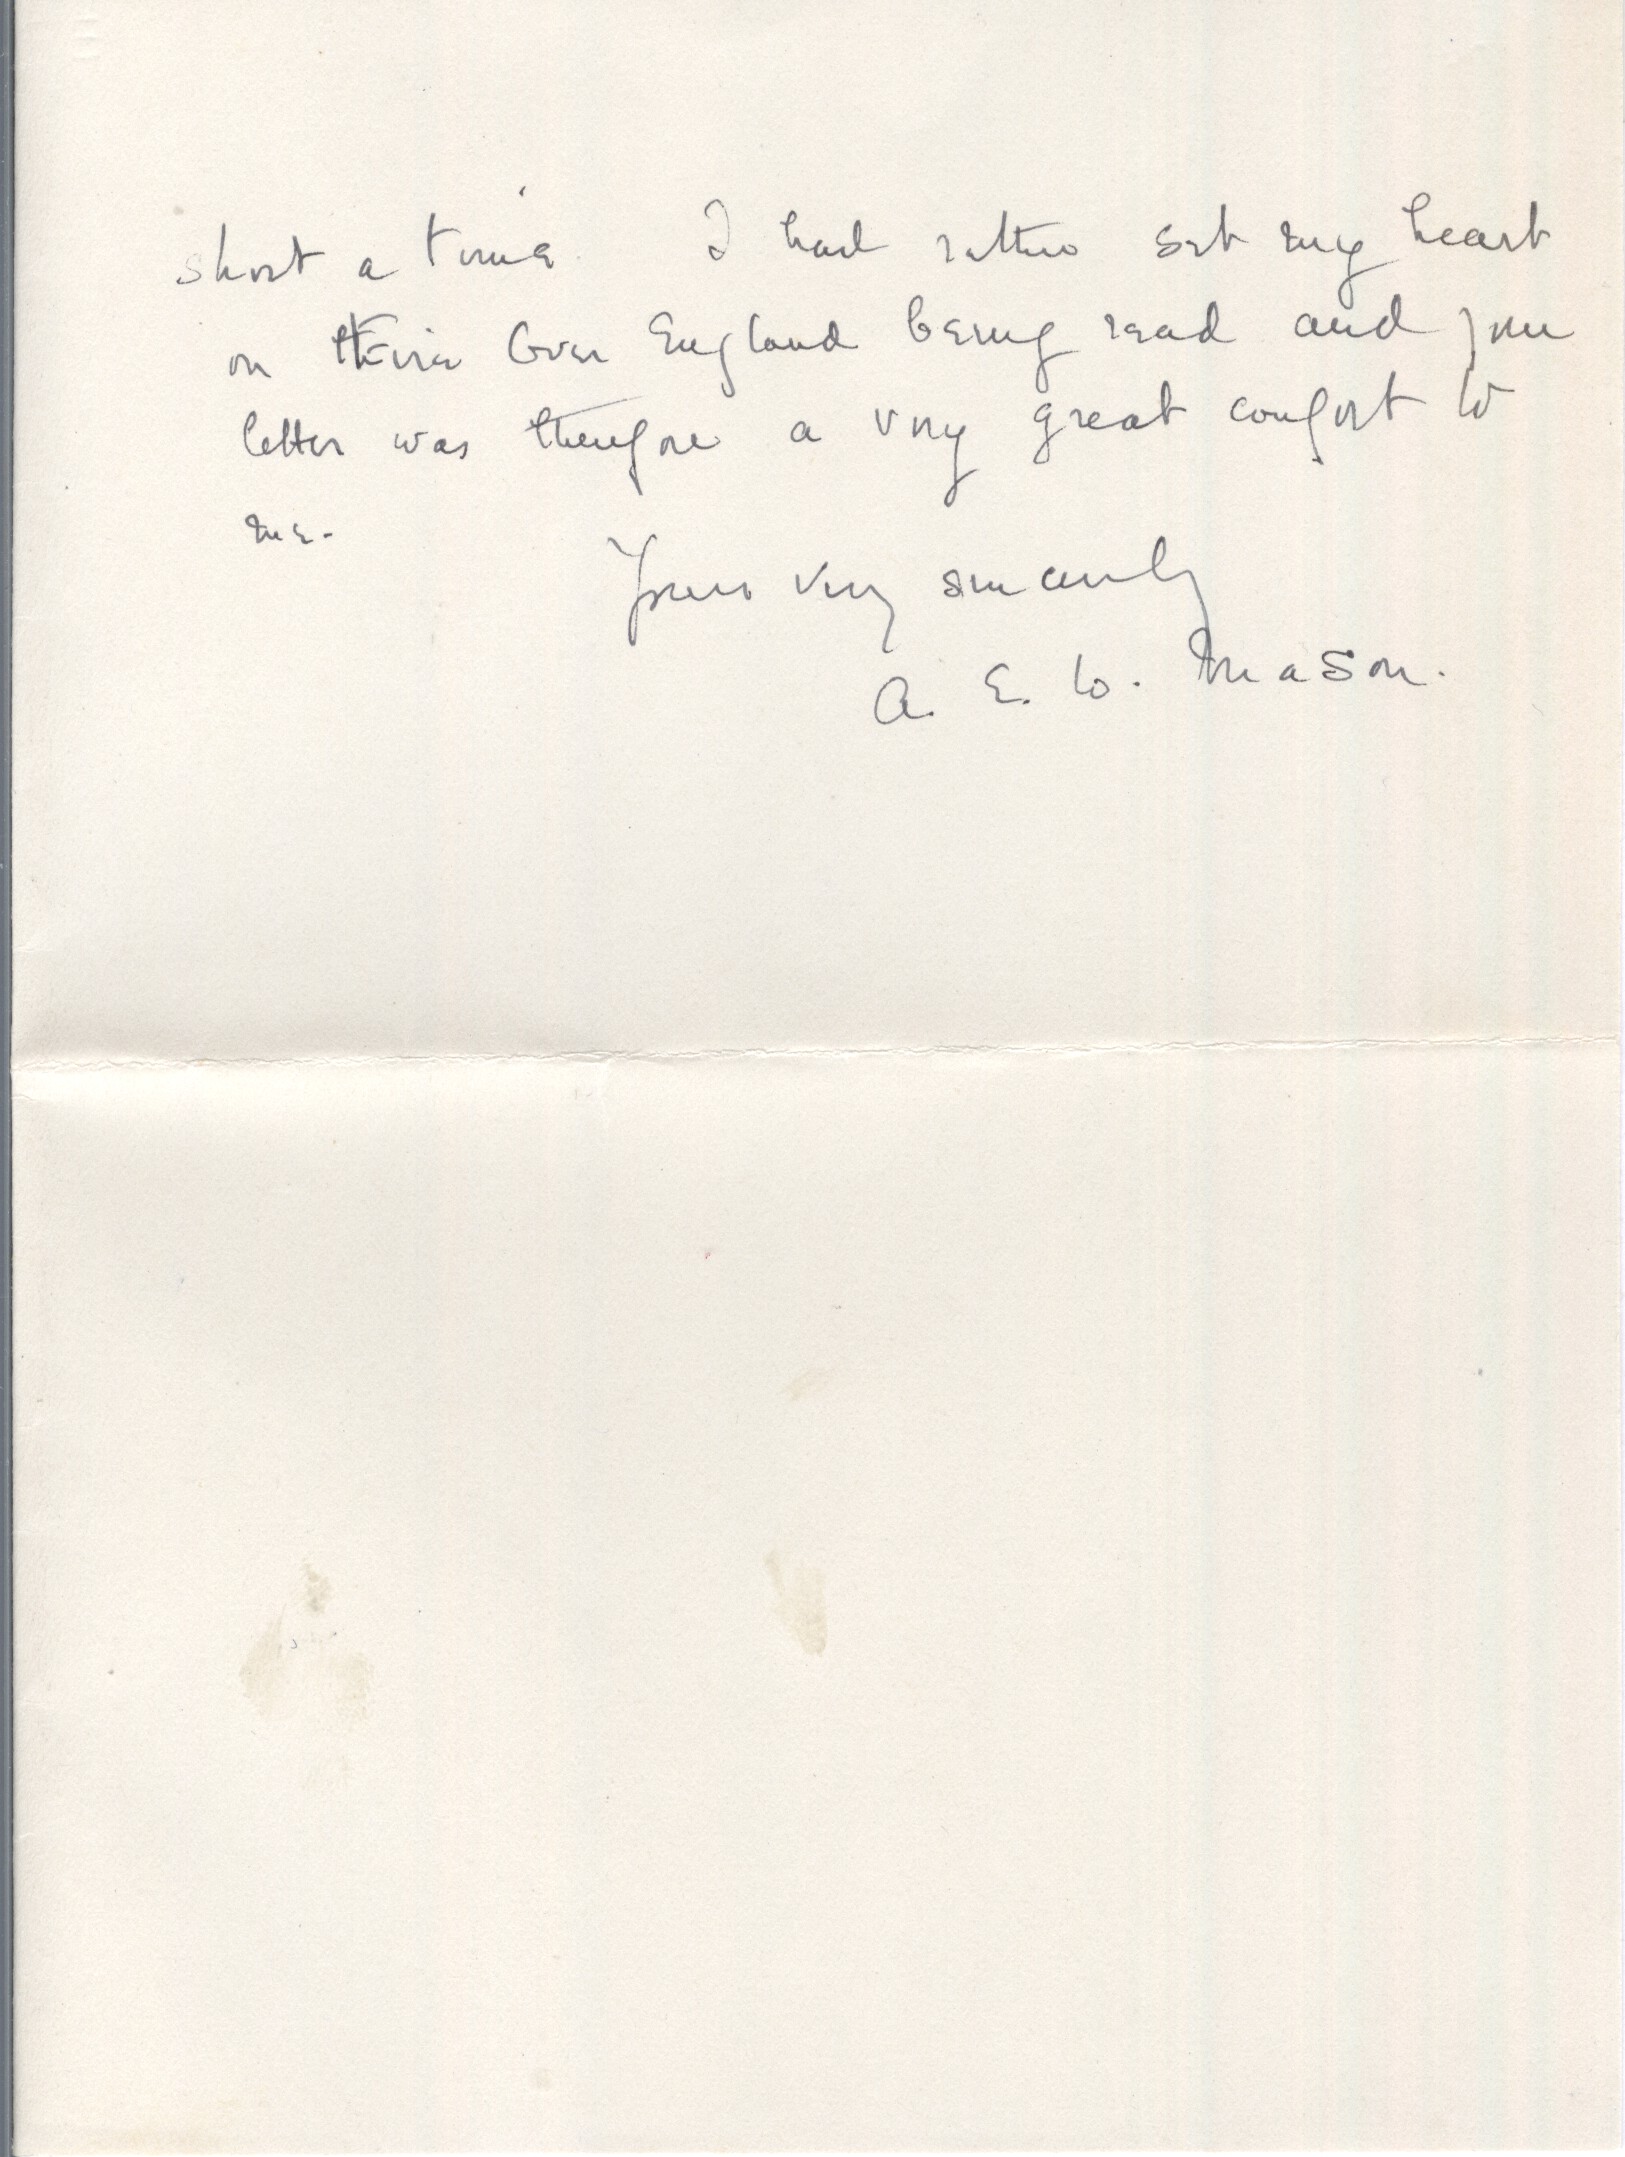 short a time. I had rather set my heart
on Fire Over England being read and your
letter was therefore a very great comfort to
me.
Yours very sincerely
A. E. W. Mason.